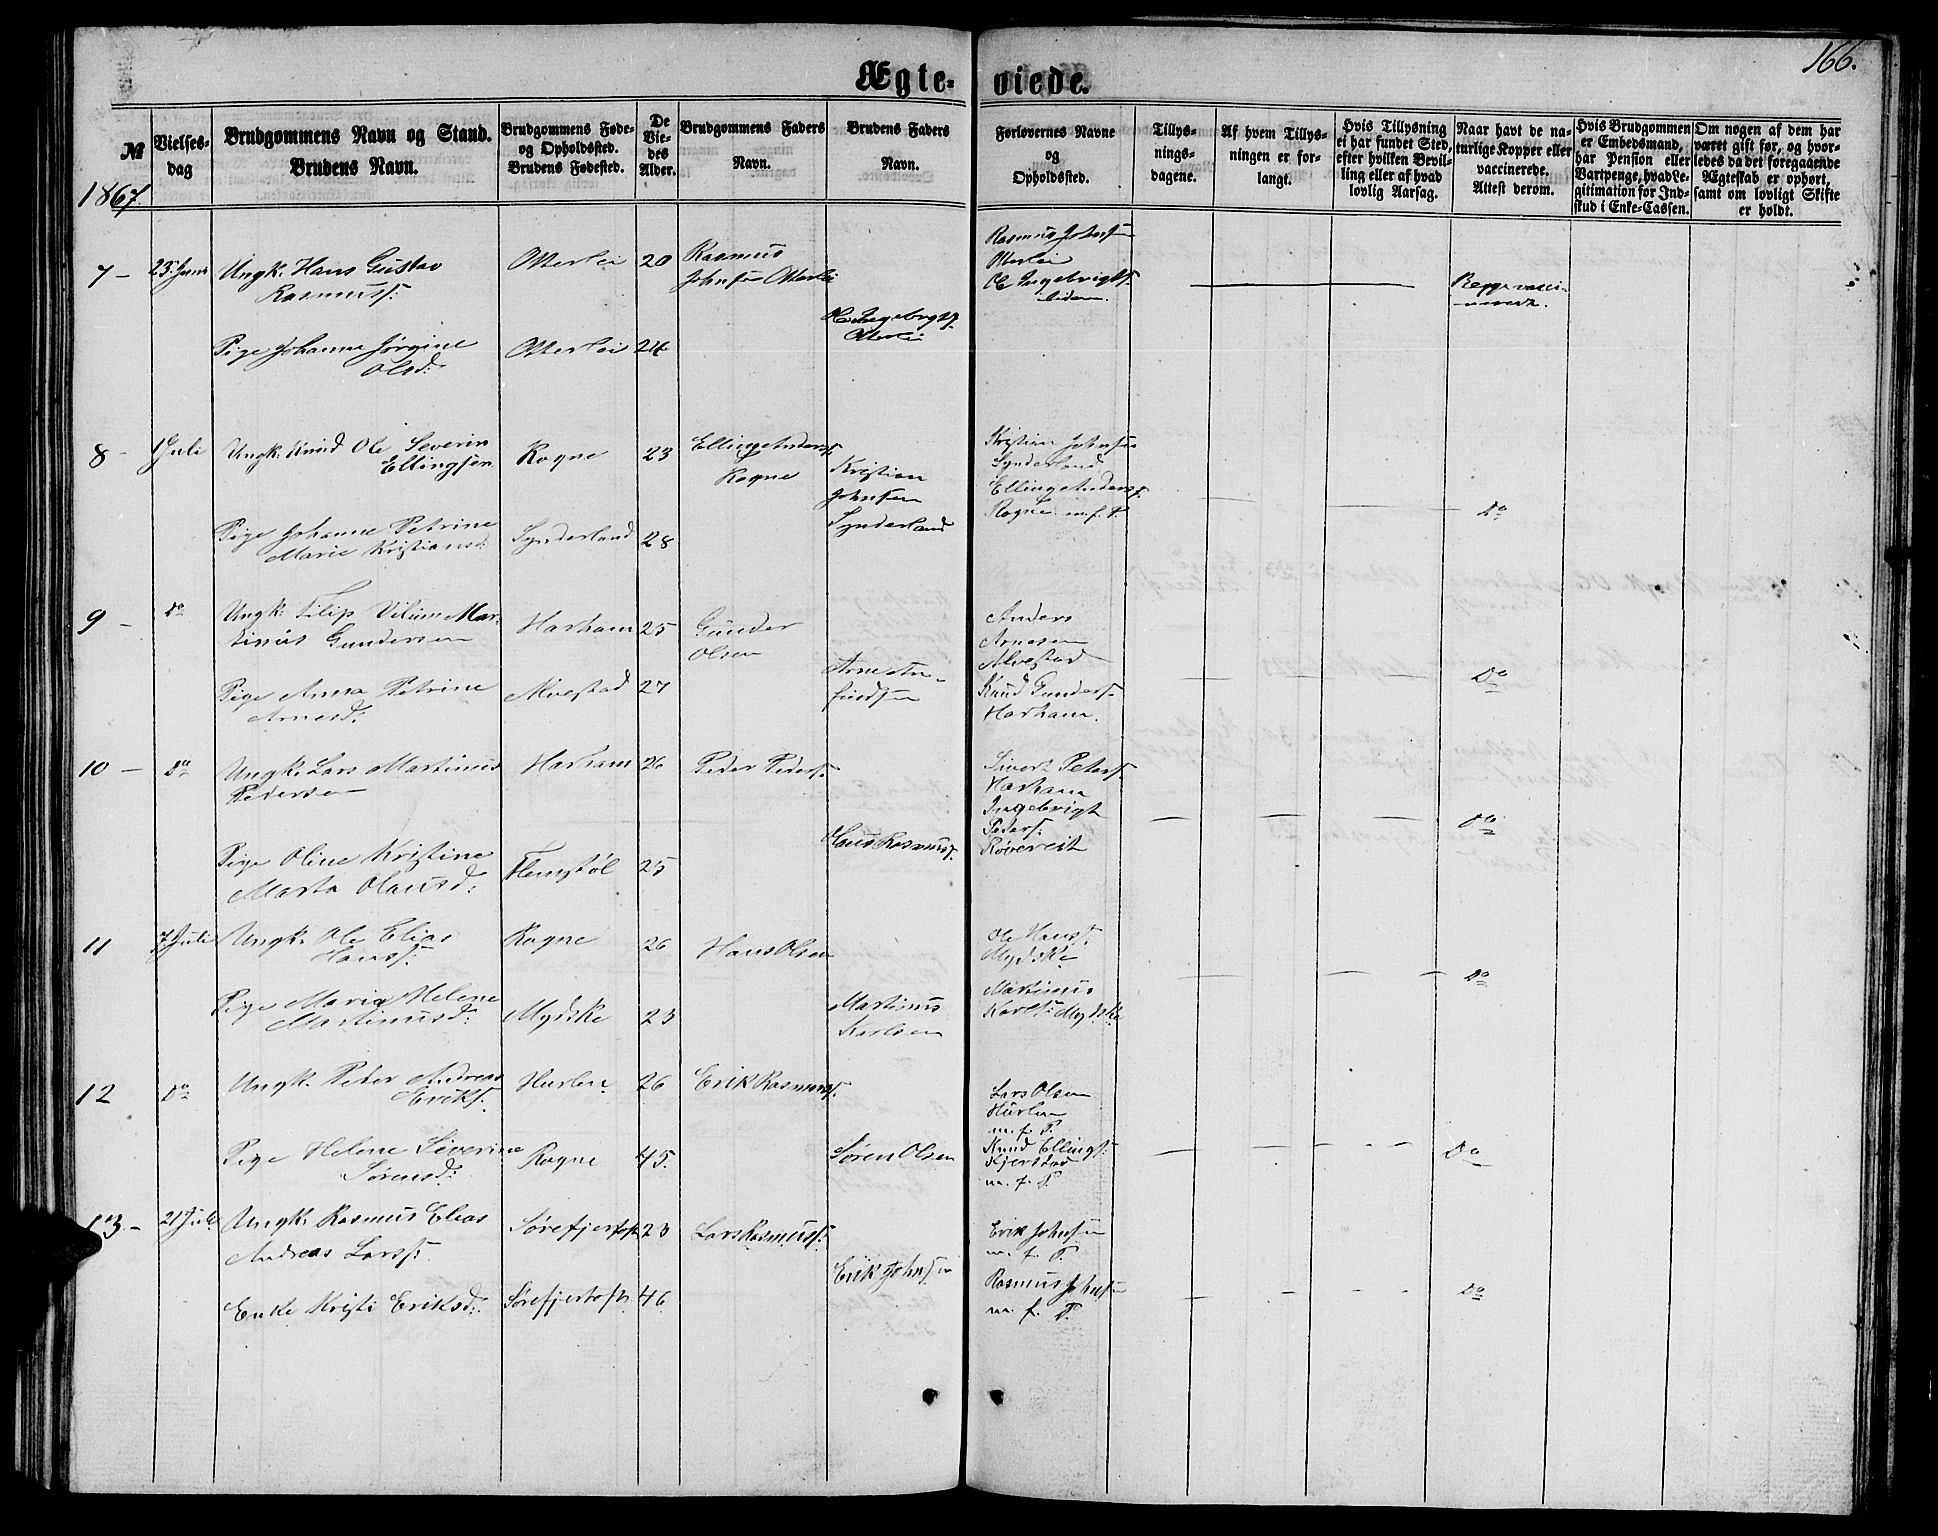 166.
Ægte-viede.
№
Vielses-
dag
Brudgommens Navn og Stand.
Brudens Navn.
Brudgommens Føde-
og Opholdssted.
Brudens Fødested.
De
Vie-
des
Alder.
Brudgommens Faders
Navn.
Brudens Faders
Navn.
Forlovernes Navne
og
Opholdssted.
Tillys-
nings-
dagene.
Af hvem Tillys-
ningen er for-
langt.
Hvis Tillysning
ei har fundet Sted,
efter hvilken Bevil-
ling eller af hvad
lovlig Aarsag.
Naar havt de na-
turlige Kopper eller
vaccinerede.
Attest derom.
Hvis Brudgommen
er Embedsmand,
har Pension eller
Vartpenge, hvad Le-
gitimation for Ind-
skud i Enke-Cassen.
Om nogen af dem har
været gift før, og hvor-
ledes da det foregaaende
Ægteskab er ophørt,
samt om lovligt Skifte
er holdt.
1867.
7 - 23 Juni Ungk. Hans Gustav
Rasmuss:
Otterlei 20 Rasmus
Johnsen Otterlei
Rasmus Johnsen
Otterlei
Ole Ingebrigts.
Begge vacci-
nerede.
Pige Johanne Jørgine
Olsd:
Otterlei 24
Ole Ingebrgts.
Otterlei
8 - 1 Juli Ungk. Knud Ole Severin
Ellingsen
Rogne 23 Elling Anders.
Rogne
Kristian Johnsen
Synderland
Elling Anders.
Rogne m. f. P.
Do
Pige Johanne Petrine
Marie Kristiansd:
Synderland 28
Kristian
Johnsen
Synderland
9 - Do Ungk. Filip Vilium Mar-
tinus Gundersen
Harham 25 Gunder
Olsen
Anders
Arnesen
Alvestad
Knud Gunders.
Harham.
Do
Pige Anna Petrine
Arnesd:
Alvestad 27
Arne An-
findsen
10 - Do Ungk. Lars Martinus
Pedersen
Harham 26 Peder Peders.
Sivert Peters.
Harham
Ingebrigt
Peders:
Røvereit
Do
Pige Oline Kristine
Marta Hansd:
Flemstøl 25
Hans Rasmuss.
11 7 Juli Ungk. Ole Elias
Hanss:
Rogne 26 Hans Olsen
Ole Hanss.
Mydske
Martinus
Karls: Mydske
Do
Pige Maria Helene
Martinusd:
Mydske 23
Martinus
Karlsen
12 Do Ungk. Peder Andreas
Eriks.
Hurlen 26 Erik Rasmuss.
Lars Olsen
Hurlen
m. f. P.
Knud Ellings.
Kjerstad
m. f. P.
Do
Pige Helene Severine
Sørensd:
Rogne 45.
Søren Olsen
13 - 21 Juli Ungk. Rasmus Elias
Andreas Larss:
Sørefjertoft 23 Lars Rasmuss:
Erik Johnsen
m. f. P.
Rasmus Johnsen
m. f. P.
Do
Enke Kristi Eriksd:
Sørefjertoft 46
Erik Johnsen